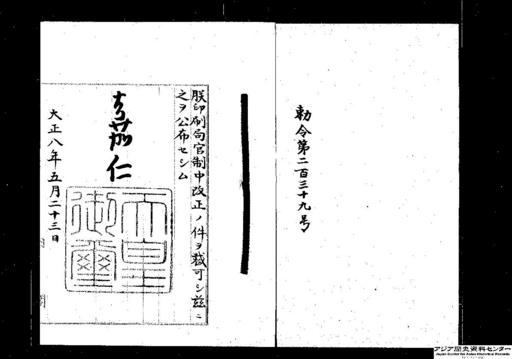 勅令第二百三十九号
朕印刷局官制中改正ノ件ヲ裁可シ茲ニ
之ヲ公布セシム
嘉仁
天皇御璽
大正八年五月二十三日
アジア歴史資料センター
Japan Center for Asian Historical Records